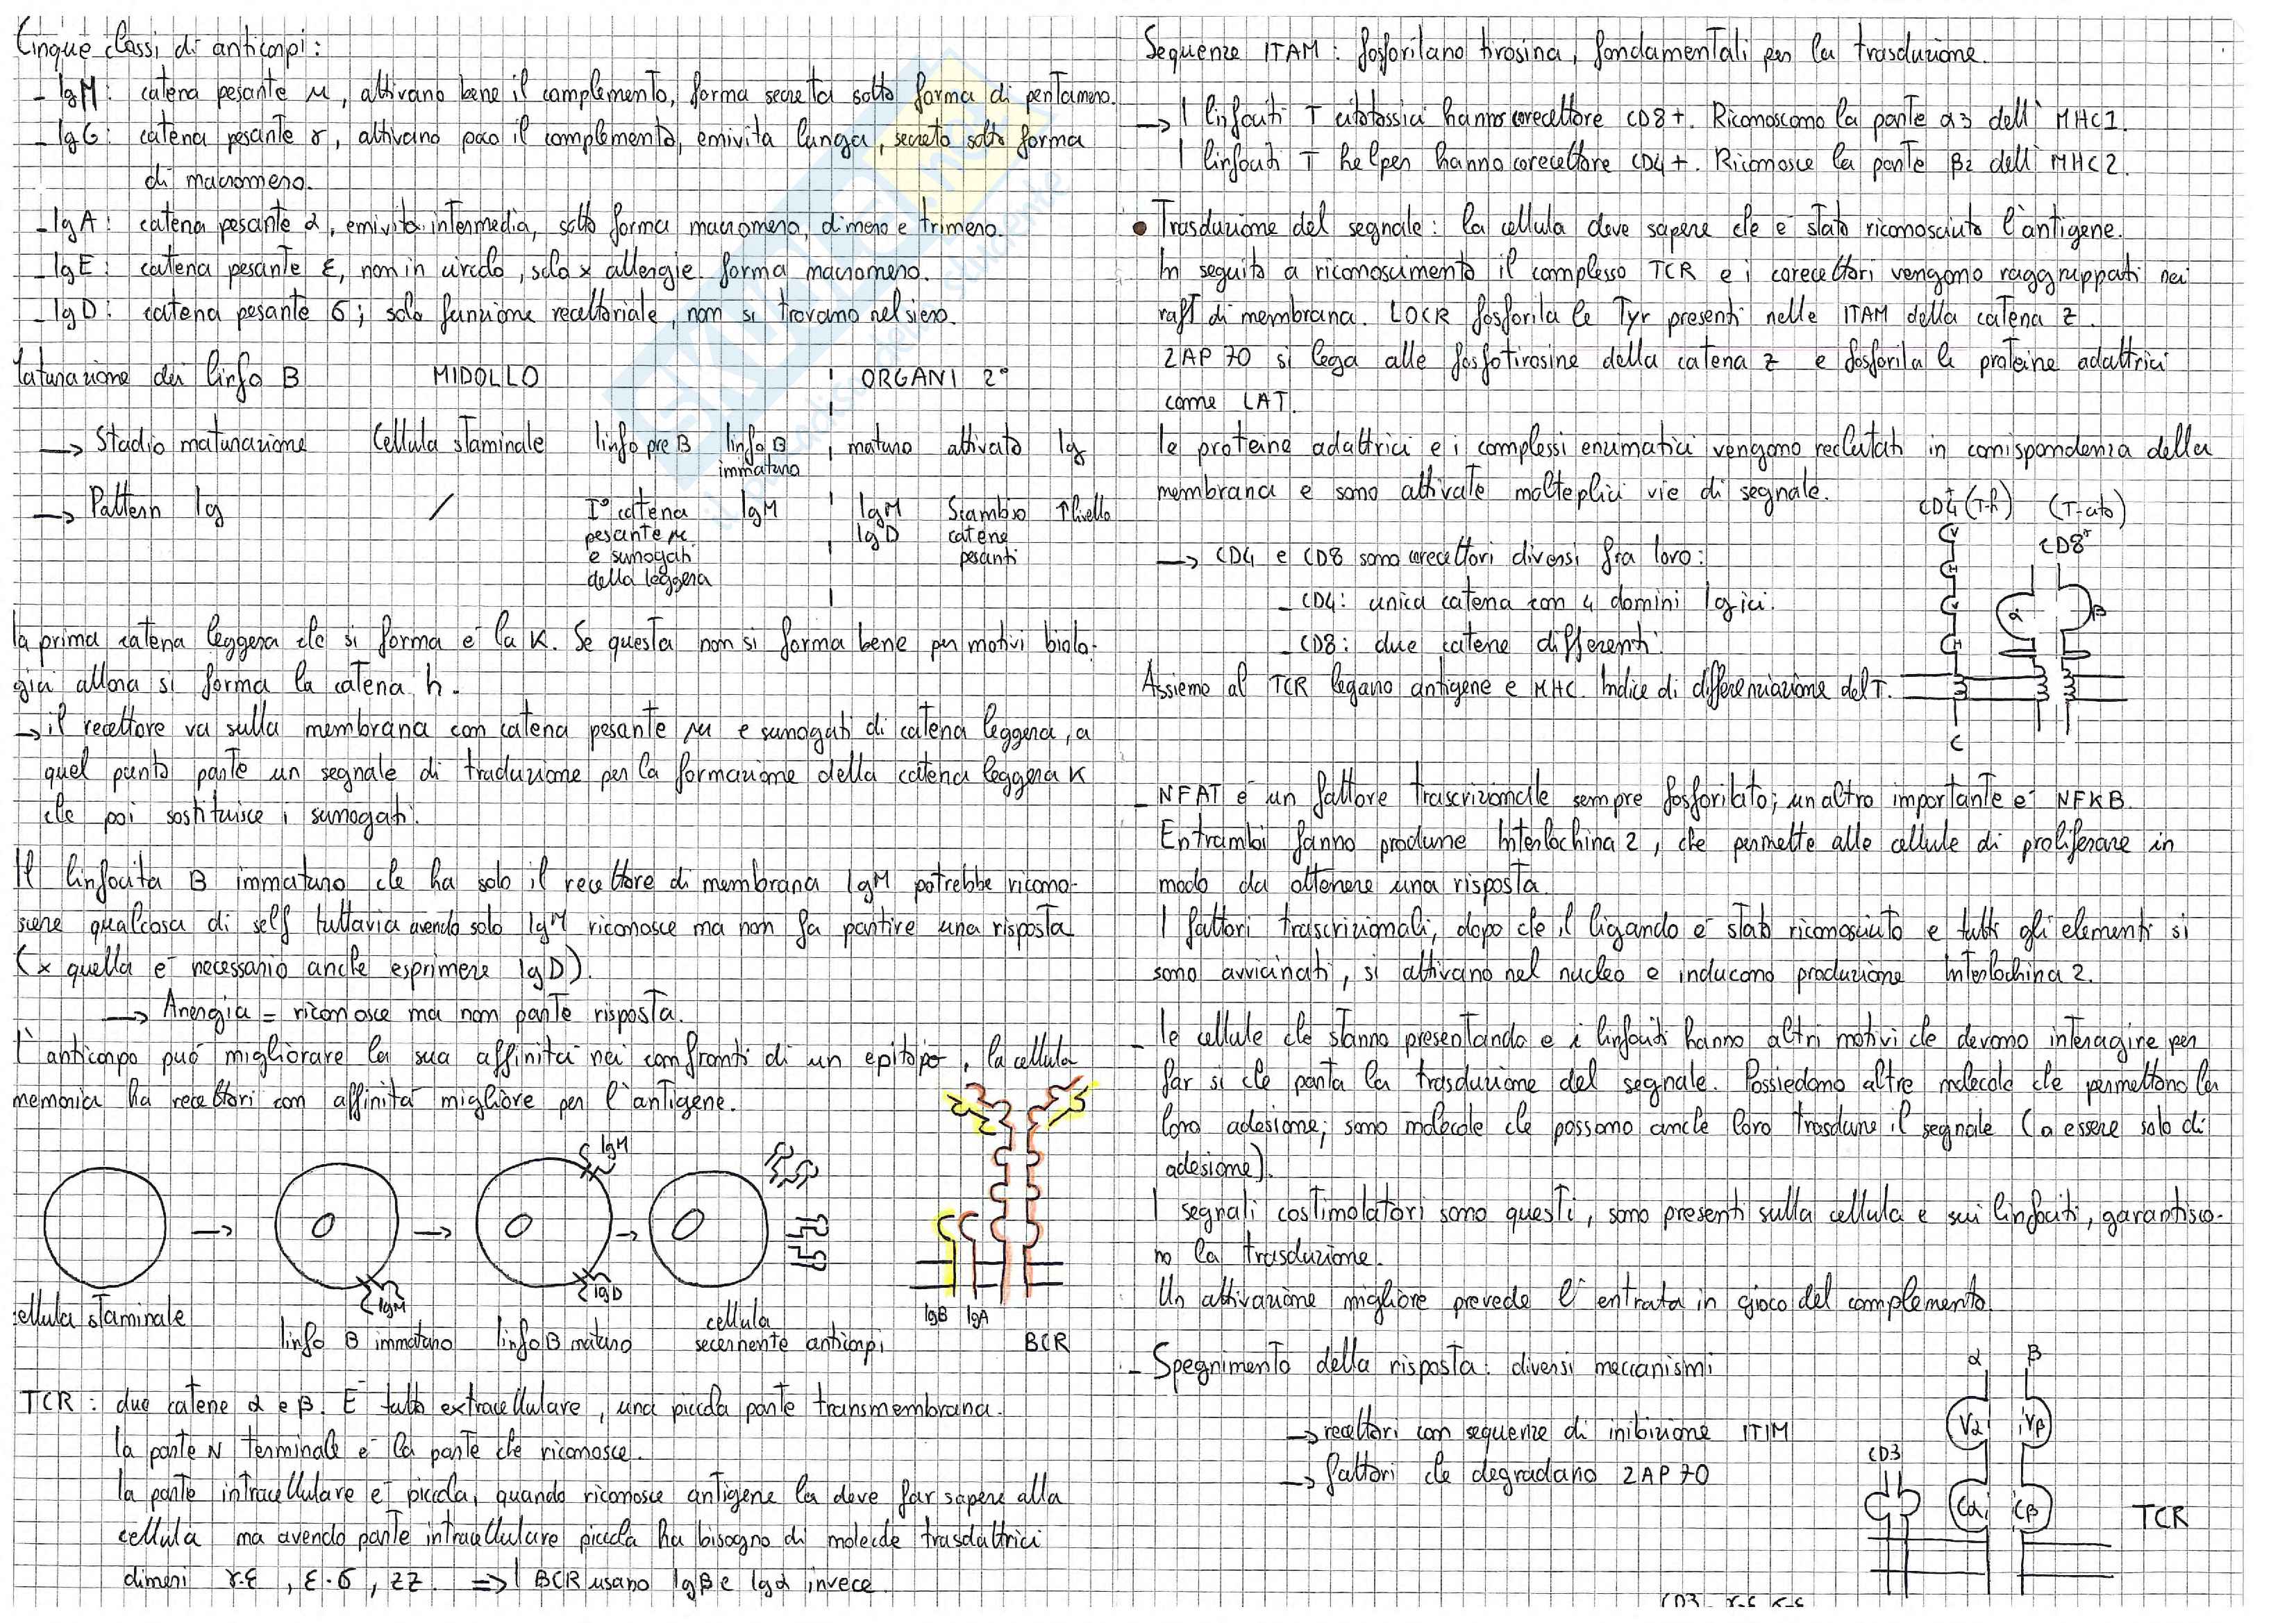 Cinque classi di anticorpi:
- IgM: catena pesante μ, attivano bene il complemento, forma secreta sotto forma di pentamero.
- IgG: catena pesante γ, attivano poco il complemento, emivita lunga, secreto sotto forma
di macromero.
- IgA: catena pesante α, emivita intermedia, sotto forma macromero, dimero e trimero.
- IgE: catena pesante ε, non in circolo, solo x allergie. forma macromero.
- IgD: catena pesante σ; solo funzione recettoriale, non si trovano nel siero.
Maturazione dei linfo B MIDOLLO ORGANI 2°
→ Stadio maturazione Cellula staminale linfo pre B linfo B immaturo maturo attivato Ig
→ Pattern Ig / I° catena pesante μ e surrogati della leggera IgM IgM IgD Scambio catene pesanti ↑ livello
la prima catena leggera che si forma è la K. Se questa non si forma bene per motivi biolo-
gici allora si forma la catena h.
→ il recettore va sulla membrana con catena pesante μ e surrogati di catena leggera, a
quel punto parte un segnale di traduzione per la formazione della catena leggera K
che poi sostituisce i surrogati.
Il linfocita B immaturo che ha solo il recettore di membrana IgM potrebbe ricono-
scere qualcosa di self tuttavia avendo solo IgM riconosce ma non fa partire una risposta
(x quella è necessario anche esprimere IgD).
→ Anergia = riconosce ma non parte risposta.
L'anticorpo può migliorare la sua affinità nei confronti di un epitopo, la cellula
memoria ha recettori con affinità migliore per l'antigene.
IgM
IgM IgD
cellula staminale → linfo B immaturo → linfo B maturo → cellula secernente anticorpi
IgB IgA BCR
TCR: due catene α e β. È tutto extracellulare, una piccola parte transmembrana.
la parte N terminale è la parte che riconosce.
la parte intracellulare è piccola, quando riconosce antigene la deve far sapere alla
cellula ma avendo parte intracellulare piccola ha bisogno di molecole trasduttrici
dimeri γ-ε, ε-σ, zz. ⇒ I BCR usano Igβ e Igα invece.
Sequenze ITAM: fosforilano tirosina, fondamentali per la trasduzione.
→ I linfociti T citotossici hanno corecettore CD8+. Riconoscono la parte α3 dell'MHC1.
I linfociti T helper hanno corecettore CD4+. Riconosce la parte β2 dell'MHC2.
• Trasduzione del segnale: la cellula deve sapere che è stato riconosciuto l'antigene.
In seguito a riconoscimento il complesso TCR e i corecettori vengono raggruppati nei
raft di membrana. LOCK fosforila le Tyr presenti nelle ITAM della catena z.
ZAP 70 si lega alle fosfotirosine della catena z e fosforila le proteine adattrici
come LAT.
le proteine adattrici e i complessi enzimatici vengono reclutati in corrispondenza della
membrana e sono attivate molteplici vie di segnale.
CD4+ (T-h) (T-cito) CD8+
→ CD4 e CD8 sono corecettori diversi fra loro:
- CD4: unica catena con 4 domini Igici.
- CD8: due catene differenti.
α β
Assieme al TCR legano antigene e MHC. Indice di differenziazione del T.
C
- NFAT è un fattore trascrizionale sempre fosforilato; un altro importante è NFKB.
Entrambi fanno produrre Interlochina 2, che permette alle cellule di proliferare in
modo da ottenere una risposta.
I fattori trascrizionali, dopo che il ligando è stato riconosciuto e tutti gli elementi si
sono avvicinati, si attivano nel nucleo e inducono produzione Interlochina 2.
- le cellule che stanno presentando e i linfociti hanno altri motivi che devono interagire per
far sì che parta la trasduzione del segnale. Possiedono altre molecole che permettono la
loro adesione; sono molecole che possono anche loro trasdurre il segnale (o essere solo di
adesione).
I segnali costimolatori sono questi, sono presenti sulla cellula e sui linfociti, garantisco-
no la trasduzione.
Un attivazione migliore prevede l'entrata in gioco del complemento.
- Spegnimento della risposta: diversi meccanismi
→ recettori con sequenze di inibizione ITIM
→ fattori che degradano ZAP 70
α β
Vα Vβ
CD3
Cα Cβ
TCR